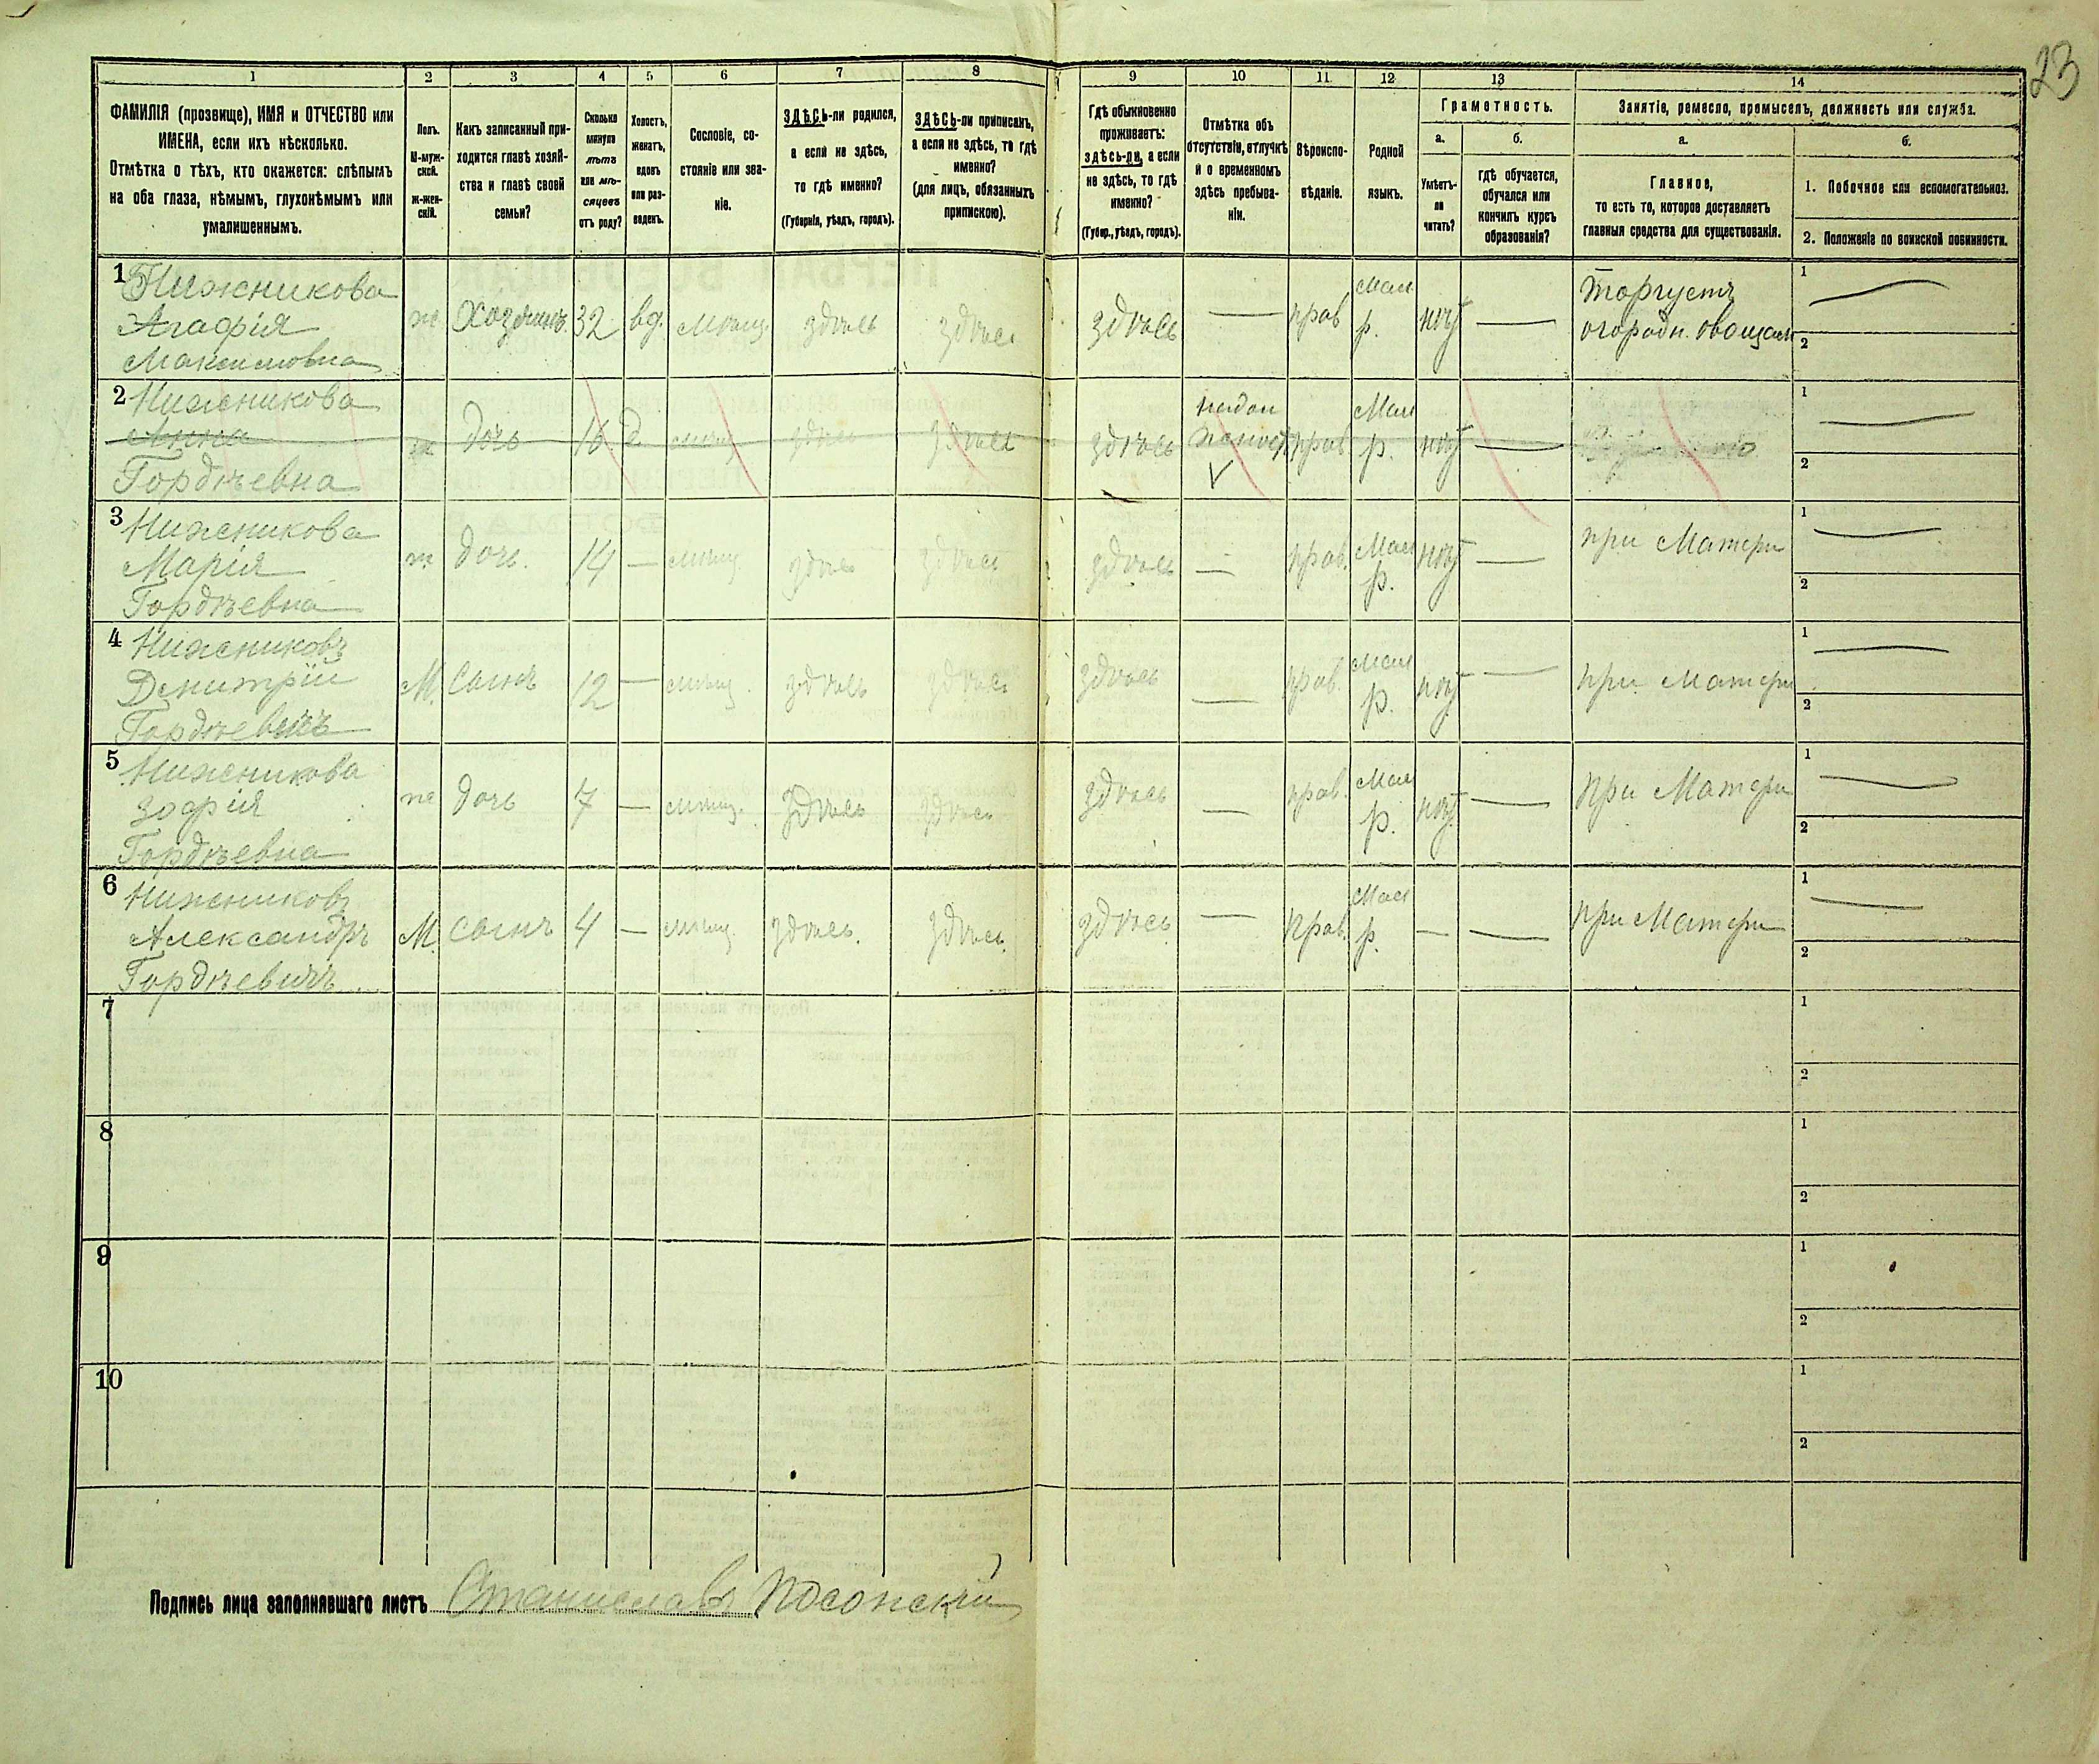 23
1 2 3 4 5 6 7 8 9 10 11 12 13 14
ФАМИЛІЯ (прозвище), ИМЯ и ОТЧЕСТВО или
ИМЕНА, если ихъ нѣсколько.
Отмѣтка о тѣхъ, кто окажется: слѣпымъ
на оба глаза, нѣмымъ, глухонѣмымъ или
умалишеннымъ.
Полъ.
М-муж-
ской.
ж-жен-
скій.
Какъ записанный при-
ходится главѣ хозяй-
ства и главѣ своей
семьи?
Сколько
минуло
лѣтъ
или мѣ-
сяцевъ
отъ роду?
Холостъ,
женатъ,
вдовъ
или раз-
веденъ.
Сословіе, со-
стояніе или зва-
ніе.
ЗДѢСЬ-ли родился,
а если не здѣсь,
то гдѣ именно?
(Губернія, уѣздъ, городъ).
ЗДѢСЬ-ли приписанъ,
а если не здѣсь, то гдѣ
именно?
(для лицъ, обязанныхъ
припискою).
Гдѣ обыкновенно
проживаетъ:
здѣсь-ли, а если
не здѣсь, то гдѣ
именно?
(Губер., уѣздъ, городъ).
Отмѣтка объ
отсутствіи, отлучкѣ
и о временномъ
здѣсь пребыва-
ніи.
Вѣроиспо-
вѣданіе.
Родной
языкъ.
Грамотность.
а.
Умѣетъ-
ли
читать?
б.
гдѣ обучается,
обучался или
кончилъ курсъ
образованія?
Занятіе, ремесло, промыселъ, должность или служба.
а.
Главное,
то есть то, которое доставляетъ
главныя средства для существованія.
б.
1. Побочное или вспомогательное.
2. Положеніе по воинской повинности.
1 Нижникова
Агафія
Максимовна
ж Хозяинъ 32 вд. мѣщ. здѣсь здѣсь здѣсь — прав Мал
р. нѣт — Торгуетъ
огородн. овощам
1 —
2
2 Нижникова
Анна
Гордѣевна
ж дочь 16 мѣщ здѣсь здѣсь здѣсь прав Мал
р. нѣт —
1 —
2
3 Нижникова
Марія
Гордѣевна
ж дочь. 14 — мѣщ здѣсь здѣсь здѣсь — прав. Мал
р. нѣт — при Матери
1 —
2
4 Нижниковъ
Димитрій
Гордѣевичъ
М. Сынъ 12 — мѣщ. здѣсь здѣсь здѣсь — прав. Мал
р. нѣт — при Матери
1 —
2
5 Нижникова
Зофія
Гордѣевна
ж дочь 7 — мѣщ. здѣсь здѣсь здѣсь — прав. Мал
р. нѣт. — при Матери
1 —
2
6 Нижниковъ
Александръ
Гордѣевичъ
М Сынъ 4 — мѣщ. здѣсь. здѣсь. здѣсь — прав. Мал
р. — — при Матери
1 —
2
7
1
2
8
1
2
9
1
2
10
1
2
Подпись лица заполнявшаго листъ Станиславъ